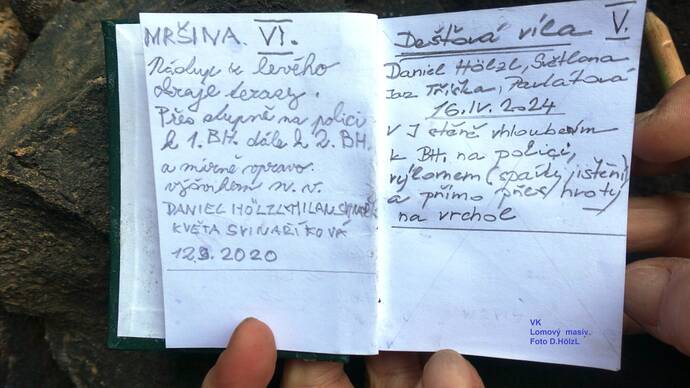 MRŠINA. VI.
Nástup z levého
okraje terasy.
Přes stupně na polici
k 1. BH. dále k 2. BH.
a mírně vpravo
výšvihem n.v.
DANIEL HÖLZL MILAN
KVĚTA SVINAŘÍKOVÁ
12.9. 2020
Dešťová víla V.
Daniel Hölzl, Světlana
Jar Tříska, Pavlatová
16.IV.2024
V J stěně vhloubením
k BH. na polici,
výlomem (spáry, jištění)
a přímo přes hroty
na vrchol
VK
Lomový masiv.
Foto D.HölzL